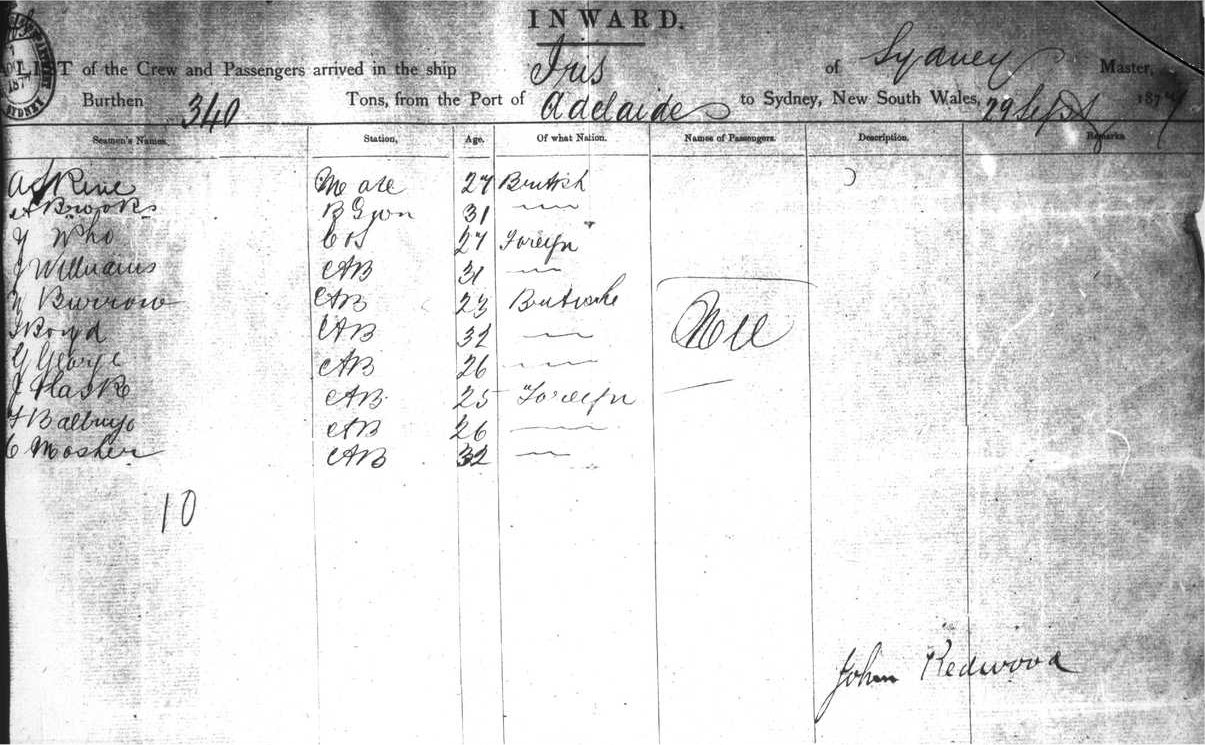 INWARD.
LIST of the Crew and Passengers arrived in the ship Iris of Sydney Master,
Burthen 340 Tons, from the Port of Adelaide to Sydney, New South Wales, 29 Sept 187
Seamen's Names. Station, Age. Of what Nation. Names of Passengers. Description. Remarks
Mate 27 British
A Brooks 31 〃
Who 27 Foreign
J Williams AB 31 〃
Burrow AB 23
Boyd AB 32 〃
G George AB 26 〃
J Hask AB 25 Foreign
AB 26 〃
C Mosher AB 32 〃
10
John Redwood